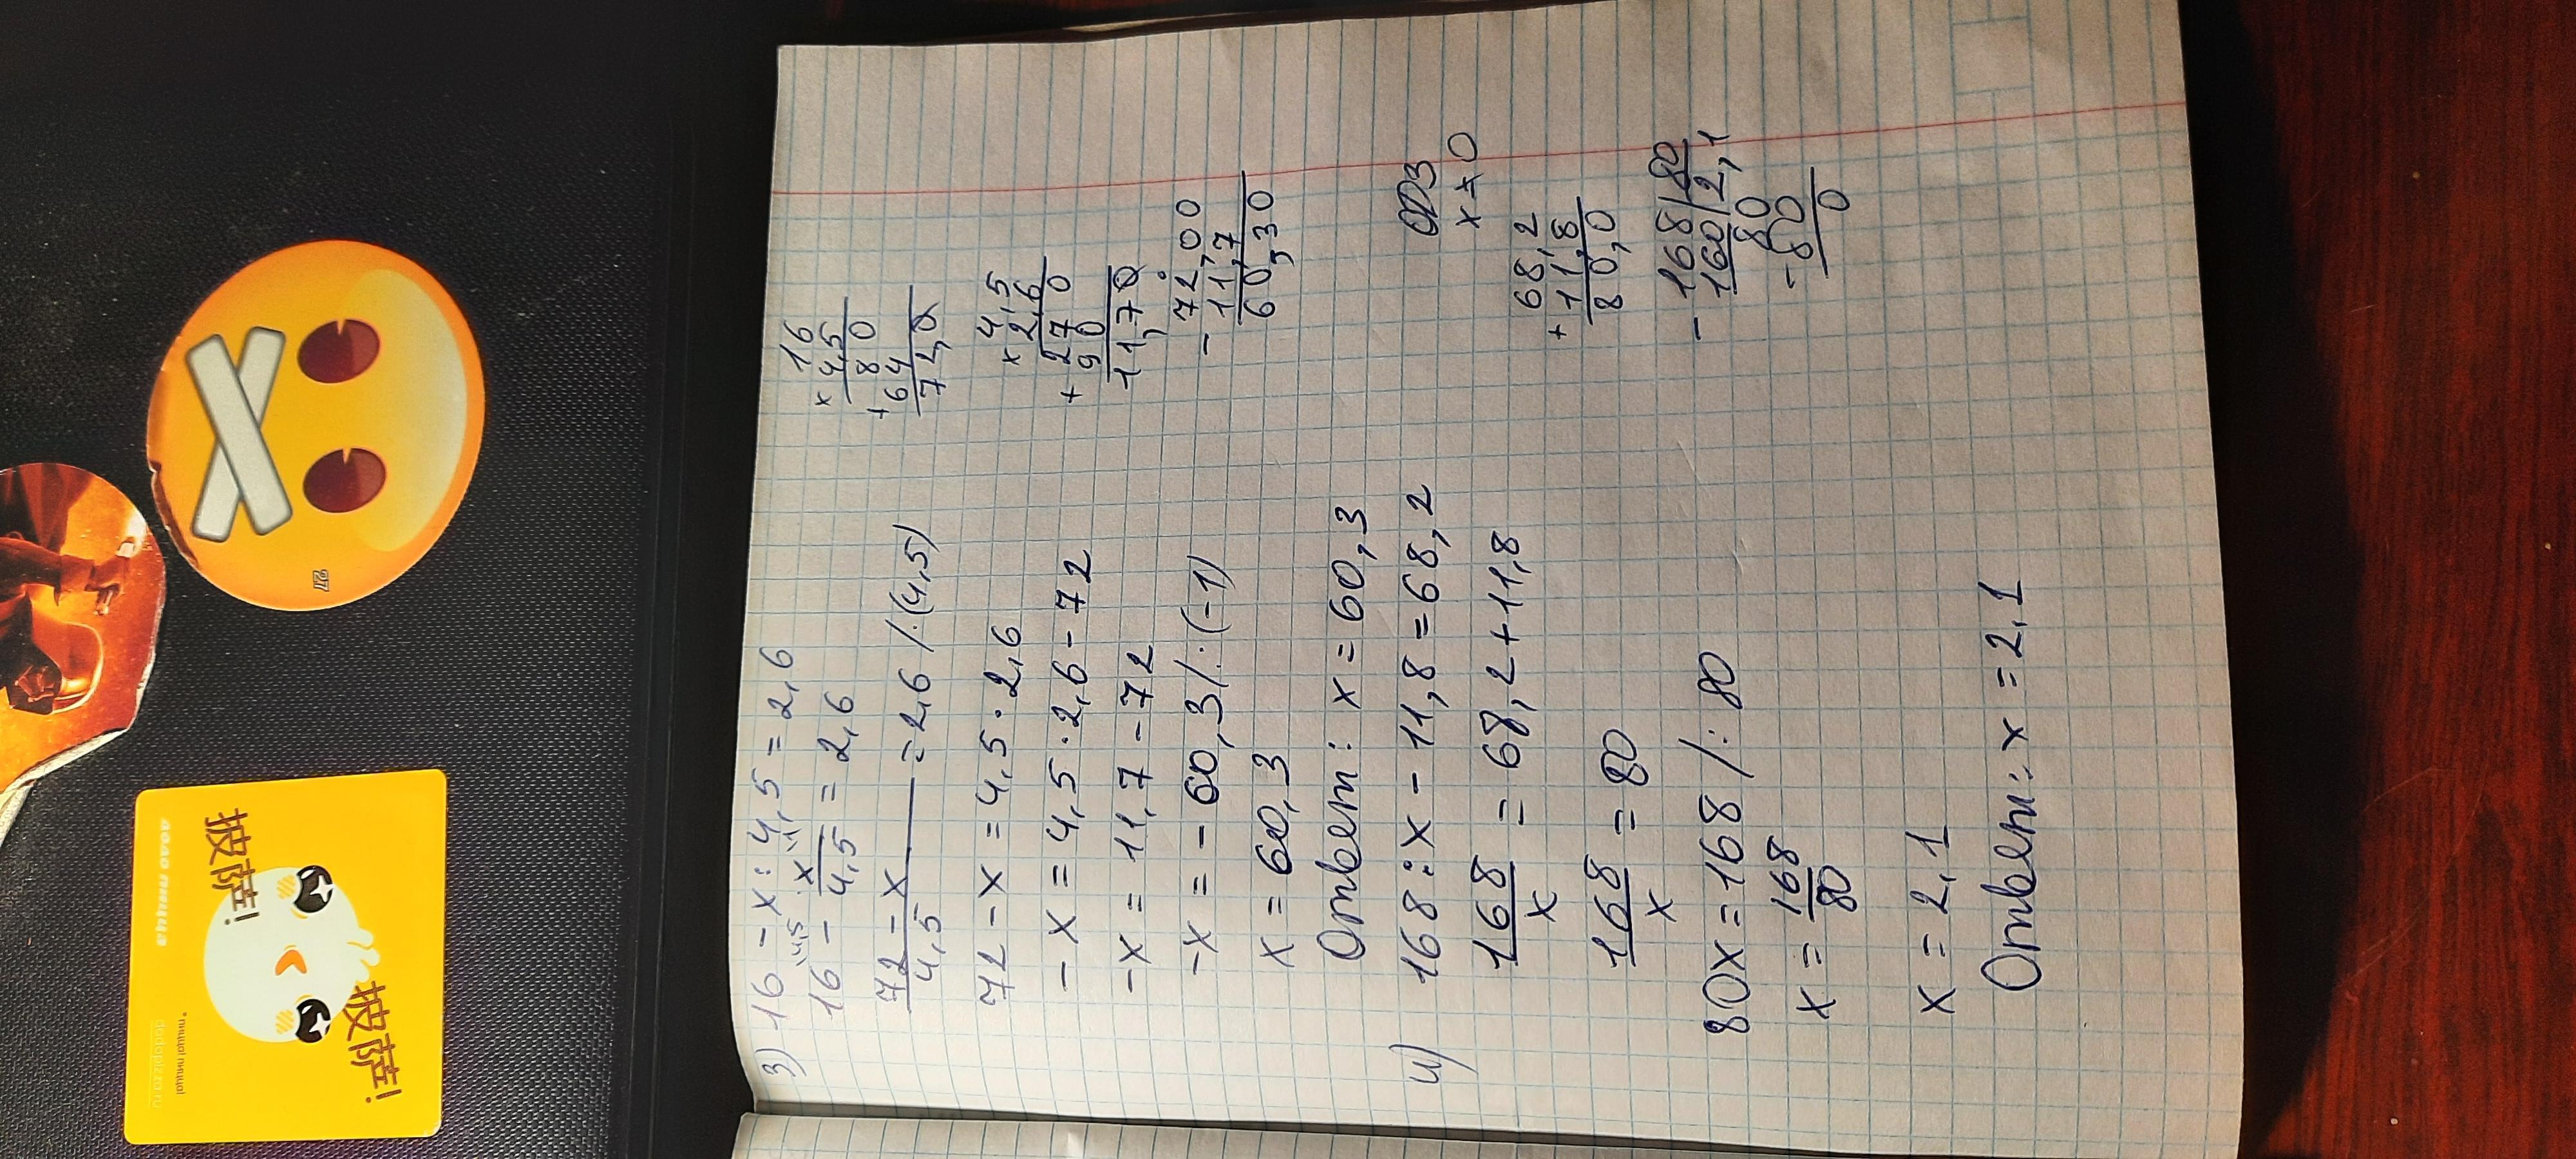 з) 16 - x : 4,5 = 2,6
16 - x/4,5 = 2,6
"4,5" "1"
72 - x / 4,5 = 2,6 /·(4,5)
72 - x = 4,5 · 2,6
- x = 4,5 · 2,6 - 72
- x = 11,7 - 72
- x = - 60,3 /: (-1)
x = 60,3
Ответ: x = 60,3
16
× 4,5
80
+ 64
72,0
4,5
× 2,6
270
+ 90
11,70
72,00
- 11,7
60,30
и) 168 : x - 11,8 = 68,2
168/x = 68,2 + 11,8
168/x = 80
80x = 168 /: 80
x = 168/80
x = 2,1
Ответ: x = 2,1
ОДЗ
x ≠ 0
68,2
+ 11,8
80,0
- 168 | 80
160 | 2,1
80
- 80
0
披萨!
披萨!
додо пицца
*пицца! пицца!
dodopizza.ru
27